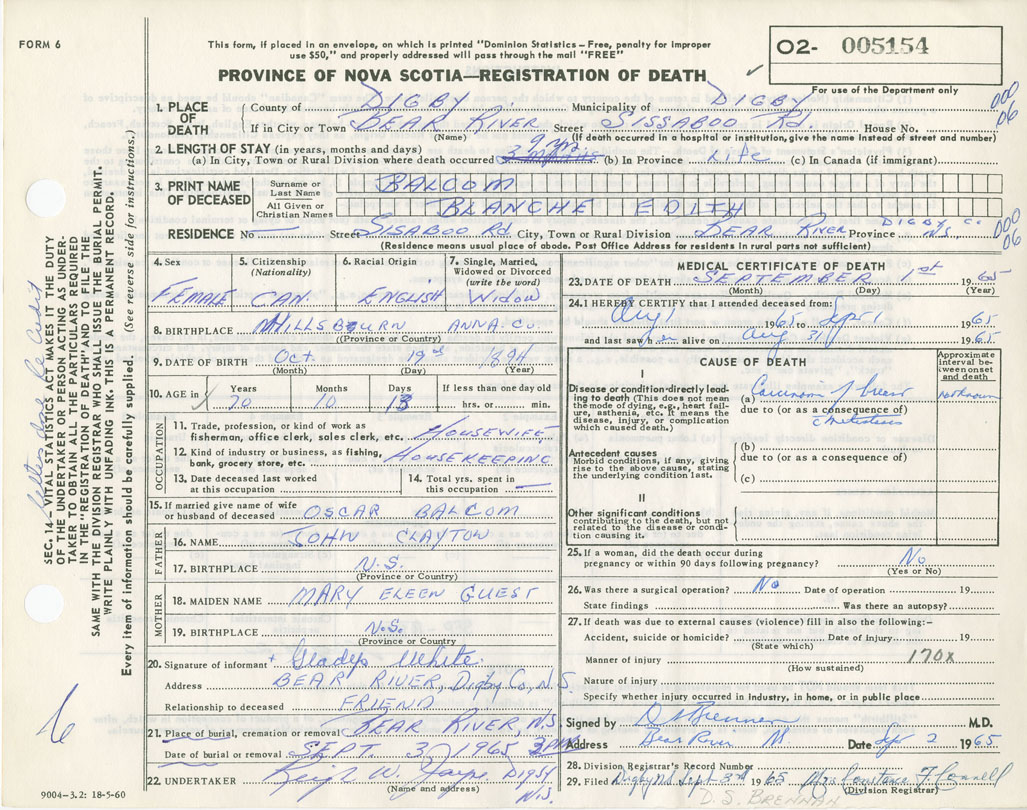 FORM 6
This form, if placed in an envelope, on which is printed "Dominion Statistics – Free, penalty for improper
use $50," and properly addressed will pass through the mail "FREE"
02- 005154
For use of the Department only
PROVINCE OF NOVA SCOTIA—REGISTRATION OF DEATH
000
06
1. PLACE OF DEATH
County of DIGBY Co. Municipality of DIGBY
If in City or Town BEAR RIVER Street SISSABOO Rd. House No.
(Name) (If death occurred in a hospital or institution, give the name instead of street and number)
2. LENGTH OF STAY (in years, months and days)
9 yrs.
(a) In City, Town or Rural Division where death occurred 3 months (b) In Province LIFE (c) In Canada (if immigrant)
3. PRINT NAME OF DECEASED
Surname or Last Name BALCOM
All Given or Christian Names BLANCHE EDITH
RESIDENCE No Street SISABOO Rd. City, Town or Rural Division BEAR RIVER Province DIGBY Co. N.S.
000
06
(Residence means usual place of abode. Post Office Address for residents in rural parts not sufficient)
4. Sex FEMALE
5. Citizenship (Nationality) CAN.
6. Racial Origin ENGLISH
7. Single, Married, Widowed or Divorced (write the word) WIDOW
8. BIRTHPLACE HILLSBOURN ANNA. Co.
(Province or Country)
9. DATE OF BIRTH Oct. 19 1894
(Month) (Day) (Year)
10. AGE in Years 70 Months 10 Days 13 If less than one day old hrs. or min.
OCCUPATION
11. Trade, profession, or kind of work as fisherman, office clerk, sales clerk, etc. HOUSEWIFE
12. Kind of industry or business, as fishing, bank, grocery store, etc. HOUSEKEEPING
13. Date deceased last worked at this occupation
14. Total yrs. spent in this occupation
15. If married give name of wife or husband of deceased OSCAR BALCOM
FATHER
16. NAME JOHN CLAYTON
17. BIRTHPLACE N.S.
(Province or Country)
MOTHER
18. MAIDEN NAME MARY ELEEN GUEST
19. BIRTHPLACE N.S.
(Province or Country)
20. Signature of informant Gladys White.
Address BEAR RIVER, Digby Co, N.S.
Relationship to deceased FRIEND
21. Place of burial, cremation or removal BEAR RIVER, N.S.
Date of burial or removal SEPT. 3, 1965
22. UNDERTAKER W. DIGBY N.S.
(Name and address)
9004-3.2: 18-5-60
MEDICAL CERTIFICATE OF DEATH
23. DATE OF DEATH SEPTEMBER 1st 1965
(Month) (Day) (Year)
24. I HEREBY CERTIFY that I attended deceased from:
Aug 1 1965 to Sept 1 1965
and last saw h er alive on Aug 31 1965
CAUSE OF DEATH
Approximate interval between onset and death
I
Disease or condition directly leading to death (This does not mean the mode of dying, e.g., heart failure, asthenia, etc. It means the disease, injury, or complication which caused death.)
(a) Carcinoma of breast unknown
due to (or as a consequence of)
Antecedent causes
Morbid conditions, if any, giving rise to the above cause, stating the underlying condition last.
(b)
due to (or as a consequence of)
(c)
II
Other significant conditions
contributing to the death, but not related to the disease or condition causing it.
25. If a woman, did the death occur during pregnancy or within 90 days following pregnancy? No
(Yes or No)
26. Was there a surgical operation? No Date of operation 19
State findings Was there an autopsy?
27. If death was due to external causes (violence) fill in also the following:–
Accident, suicide or homicide? Date of injury 19
(State which)
Manner of injury 170X
(How sustained)
Nature of injury
Specify whether injury occurred in industry, in home, or in public place
Signed by D S Brennan M.D.
Address Bear River Date Sep 2 1965
28. Division Registrar's Record Number
29. Filed Digby N.S. Sept 3rd 1965 Mrs Constance F. Connell
(Division Registrar)
D. S. BRENNAN
SEC. 14—VITAL STATISTICS ACT MAKES IT THE DUTY
OF THE UNDERTAKER OR PERSON ACTING AS UNDER-
TAKER TO OBTAIN ALL THE PARTICULARS REQUIRED
IN THE "REGISTRATION OF DEATH" AND FILE THE
SAME WITH THE DIVISION REGISTRAR WHO SHALL ISSUE THE BURIAL PERMIT.
WRITE PLAINLY WITH UNFADING INK. THIS IS A PERMANENT RECORD.
Every item of information should be carefully supplied. (See reverse side for instructions.)